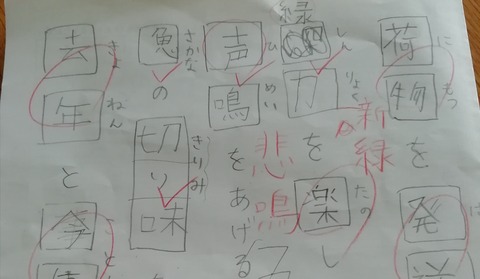 荷物を発
にもつ
は
緑
力を楽し
しんりょく
たの
新緑
声鳴をあげる
ひめい
悲鳴
魚の切り味
さかな
きりみ
去年と
きょねん